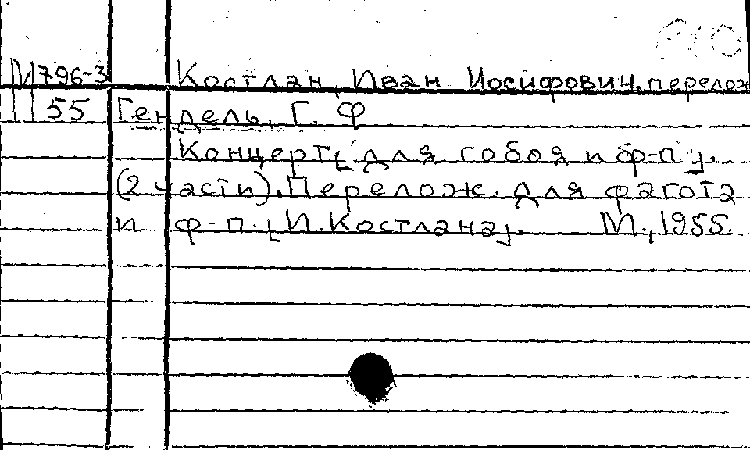 М796-3 Костлан, Иван Иосифович, перелож
55 Гендель, Г. Ф
Концерт [для гобоя и ф-п].
(2 части). Перелож. для фагота
и ф-п. [И. Костлана]. М., 1955